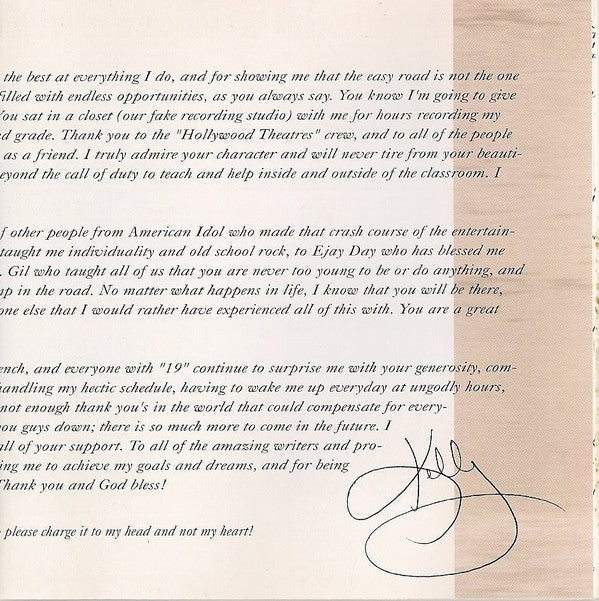 the best at everything I do, and for showing me that the easy road is not the one
filled with endless opportunities, as you always say. You know I'm going to give
You sat in a closet (our fake recording studio) with me for hours recording my
d grade. Thank you to the "Hollywood Theatres" crew, and to all of the people
as a friend. I truly admire your character and will never tire from your beauti-
eyond the call of duty to teach and help inside and outside of the classroom. I
f other people from American Idol who made that crash course of the entertain-
taught me individuality and old school rock, to Ejay Day who has blessed me
. Gil who taught all of us that you are never too young to be or do anything, and
mp in the road. No matter what happens in life, I know that you will be there,
one else that I would rather have experienced all of this with. You are a great
ench, and everyone with "19" continue to surprise me with your generosity, com-
handling my hectic schedule, having to wake me up everyday at ungodly hours,
not enough thank you's in the world that could compensate for every-
ou guys down; there is so much more to come in the future. I
all of your support. To all of the amazing writers and pro-
ing me to achieve my goals and dreams, and for being
Thank you and God bless!
please charge it to my head and not my heart!
Kelly